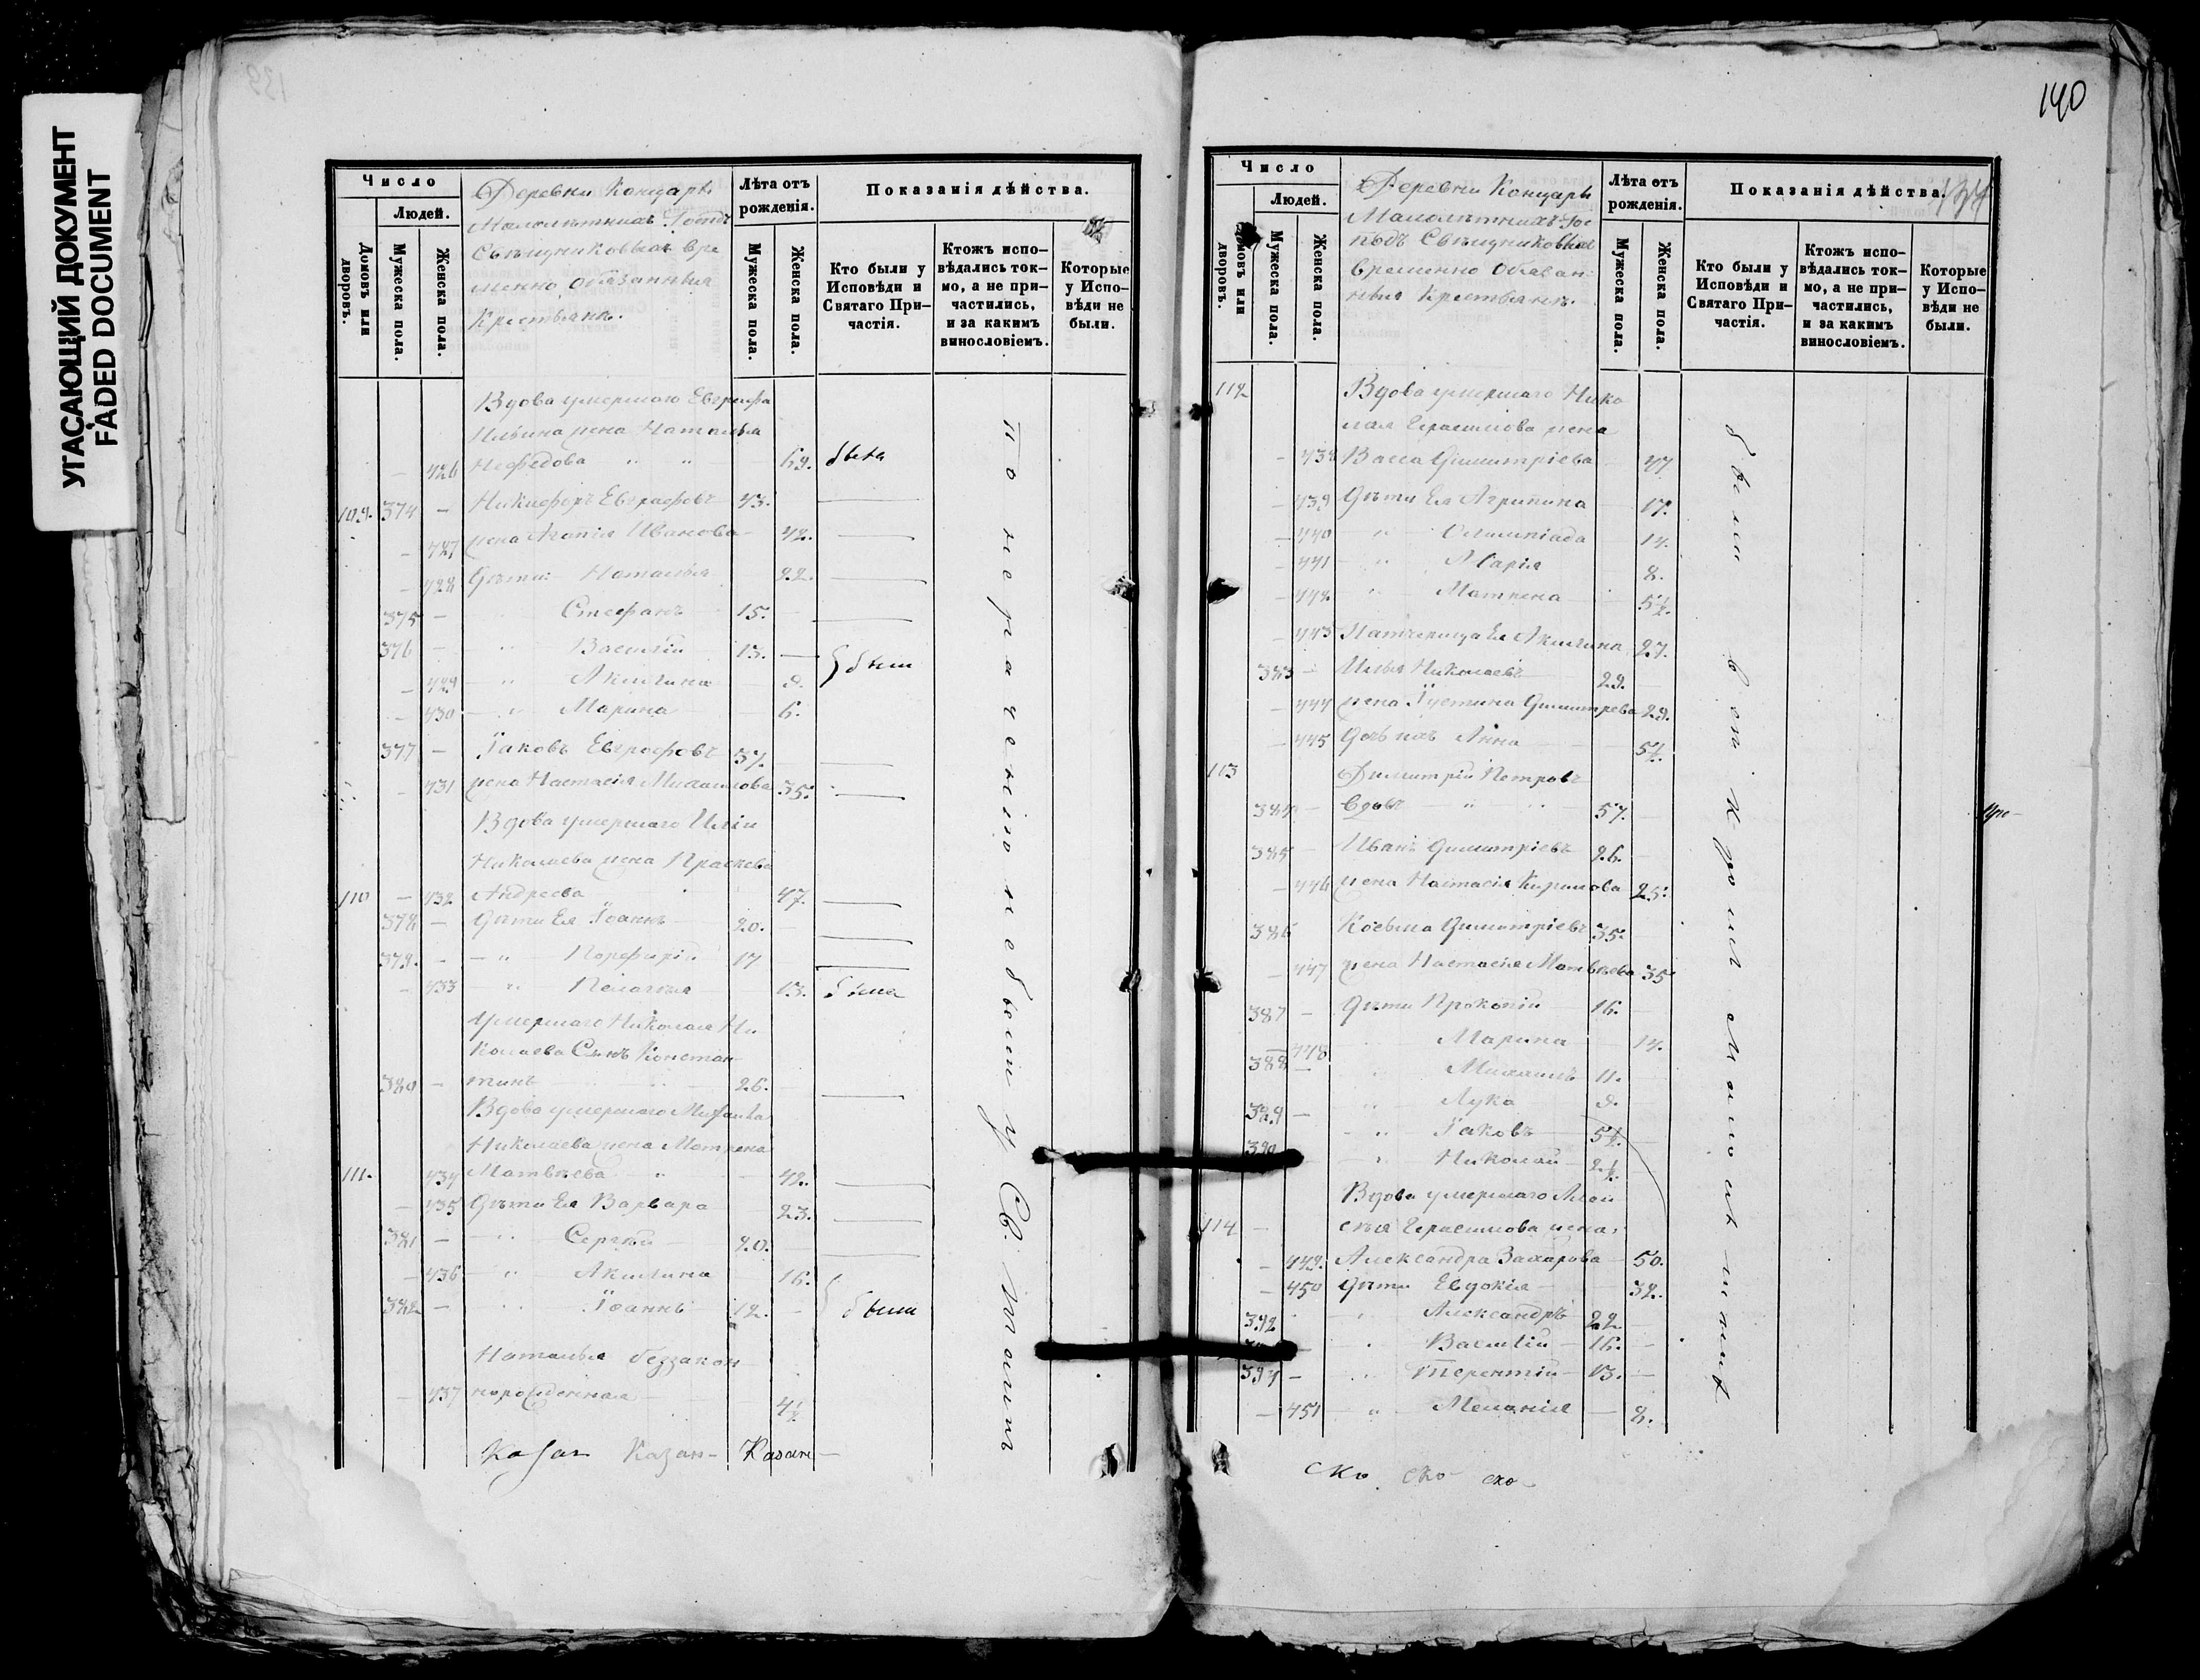 УГАСАЮЩИЙ ДОКУМЕНТ
FADED DOCUMENT
139
Число
Людей.
Домовъ или дворовъ.
Мужеска пола.
Женска пола.
Деревни Концарь
Малолѣтнихъ Госпдъ
Свѣшниковыхъ вре
менно обязанныя
Крестьяне.
Лѣта отъ рожденія.
Мужеска пола.
Женска пола.
Показанія дѣйства.
Кто были у Исповѣди и Святаго При-частія.
Ктожъ испо-вѣдались ток-мо, а не при-частились, и за какимъ винословіемъ.
Которые у Испо-вѣди не были.
Вдова умершаго Евграфа
Ильина жена Наталья
– 426 Нефедова " " 69. была
109. 374 – Никифоръ Евграфовъ 43.
– 427 жена Агапія Иванова 42.
– 428 Дѣти: Наталья 22.
375 – Стефанъ 15.
376 – " Василій 13. – были
– 429 " Акилина 9.
– 430 " Марина 6.
377 – Іаковъ Евграфовъ 37.
– 431 жена Настасія Михаилова 35.
Вдова умершаго Иліи
Николаева жена Праскева
110 – 432 Андреева 47.
378 – Дѣти Ея Іоаннъ 20.
379. – " Порфирій 17
– 433 " Пелагея 13. была
Умершаго Николая Ни
колаева Сынъ Констан
380 – тинъ 26.
Вдова умершаго Михаила
Николаева жена Матрена
111. 434 Матвѣева " 42.
– 435 Дѣти Ея Варвара 23.
381 – " Сергѣй 20.
– 436 " Акилина 16.
382 – " Іоаннъ 12. – были
Наталья беззакон
– 437 норожденная 4½
по нераченію небыли у Св. Тайн
Казан Казан- Казан-
140
Число
Людей.
Домовъ или дворовъ.
Мужеска пола.
Женска пола.
Деревни Концарь
Малолѣтнихъ Гос
подъ Свѣшниковыхъ
временно обязан
ныя Крестьяне.
Лѣта отъ рожденія.
Мужеска пола.
Женска пола.
Показанія дѣйства.
Кто были у Исповѣди и Святаго При-частія.
Ктожъ испо-вѣдались ток-мо, а не при-частились, и за какимъ винословіемъ.
Которые у Испо-вѣди не были.
112 Вдова умершаго Нико
лая Герасимова жена
– 438 Васса Димитріева 47
– 439 Дѣти Ея Агрипина 17.
– 440 " Олимпіада 14.
– 441 " Марія 8.
– 442 " Матрена 5½.
– 443 Натчерица Ея Акилина 27.
383 – Илья Николаевъ 29.
– 444 жена Іустина Димитрева 29.
– 445 Дочь ихъ Анна 5½.
113 Димитрій Петровъ
384 – вдовъ " " 57.
385 – Иванъ Димитріевъ 26.
– 446 жена Настасія Кирилова 25.
386 Косьма Димитріевъ 35.
– 447 жена Настасія Матвѣева 35
387 – Дѣти Прокопій 16.
448 Марина 14.
388 – " Михаилъ 11.
389 – " Лука 9.
390 " Іаковъ 5½.
" Николай 2½.
Вдова умершаго Алек
114 – сѣя Герасимова жена
– 449. Александра Захарова 50.
– 450 Дѣти Евдокія 32.
392 " Александръ 22
– " Василій 16. –
394 – " Терентій 13. –
– 451 " Меланія 8.
были всѣ кромѣ малолѣтнихъ
ско ско- ско-